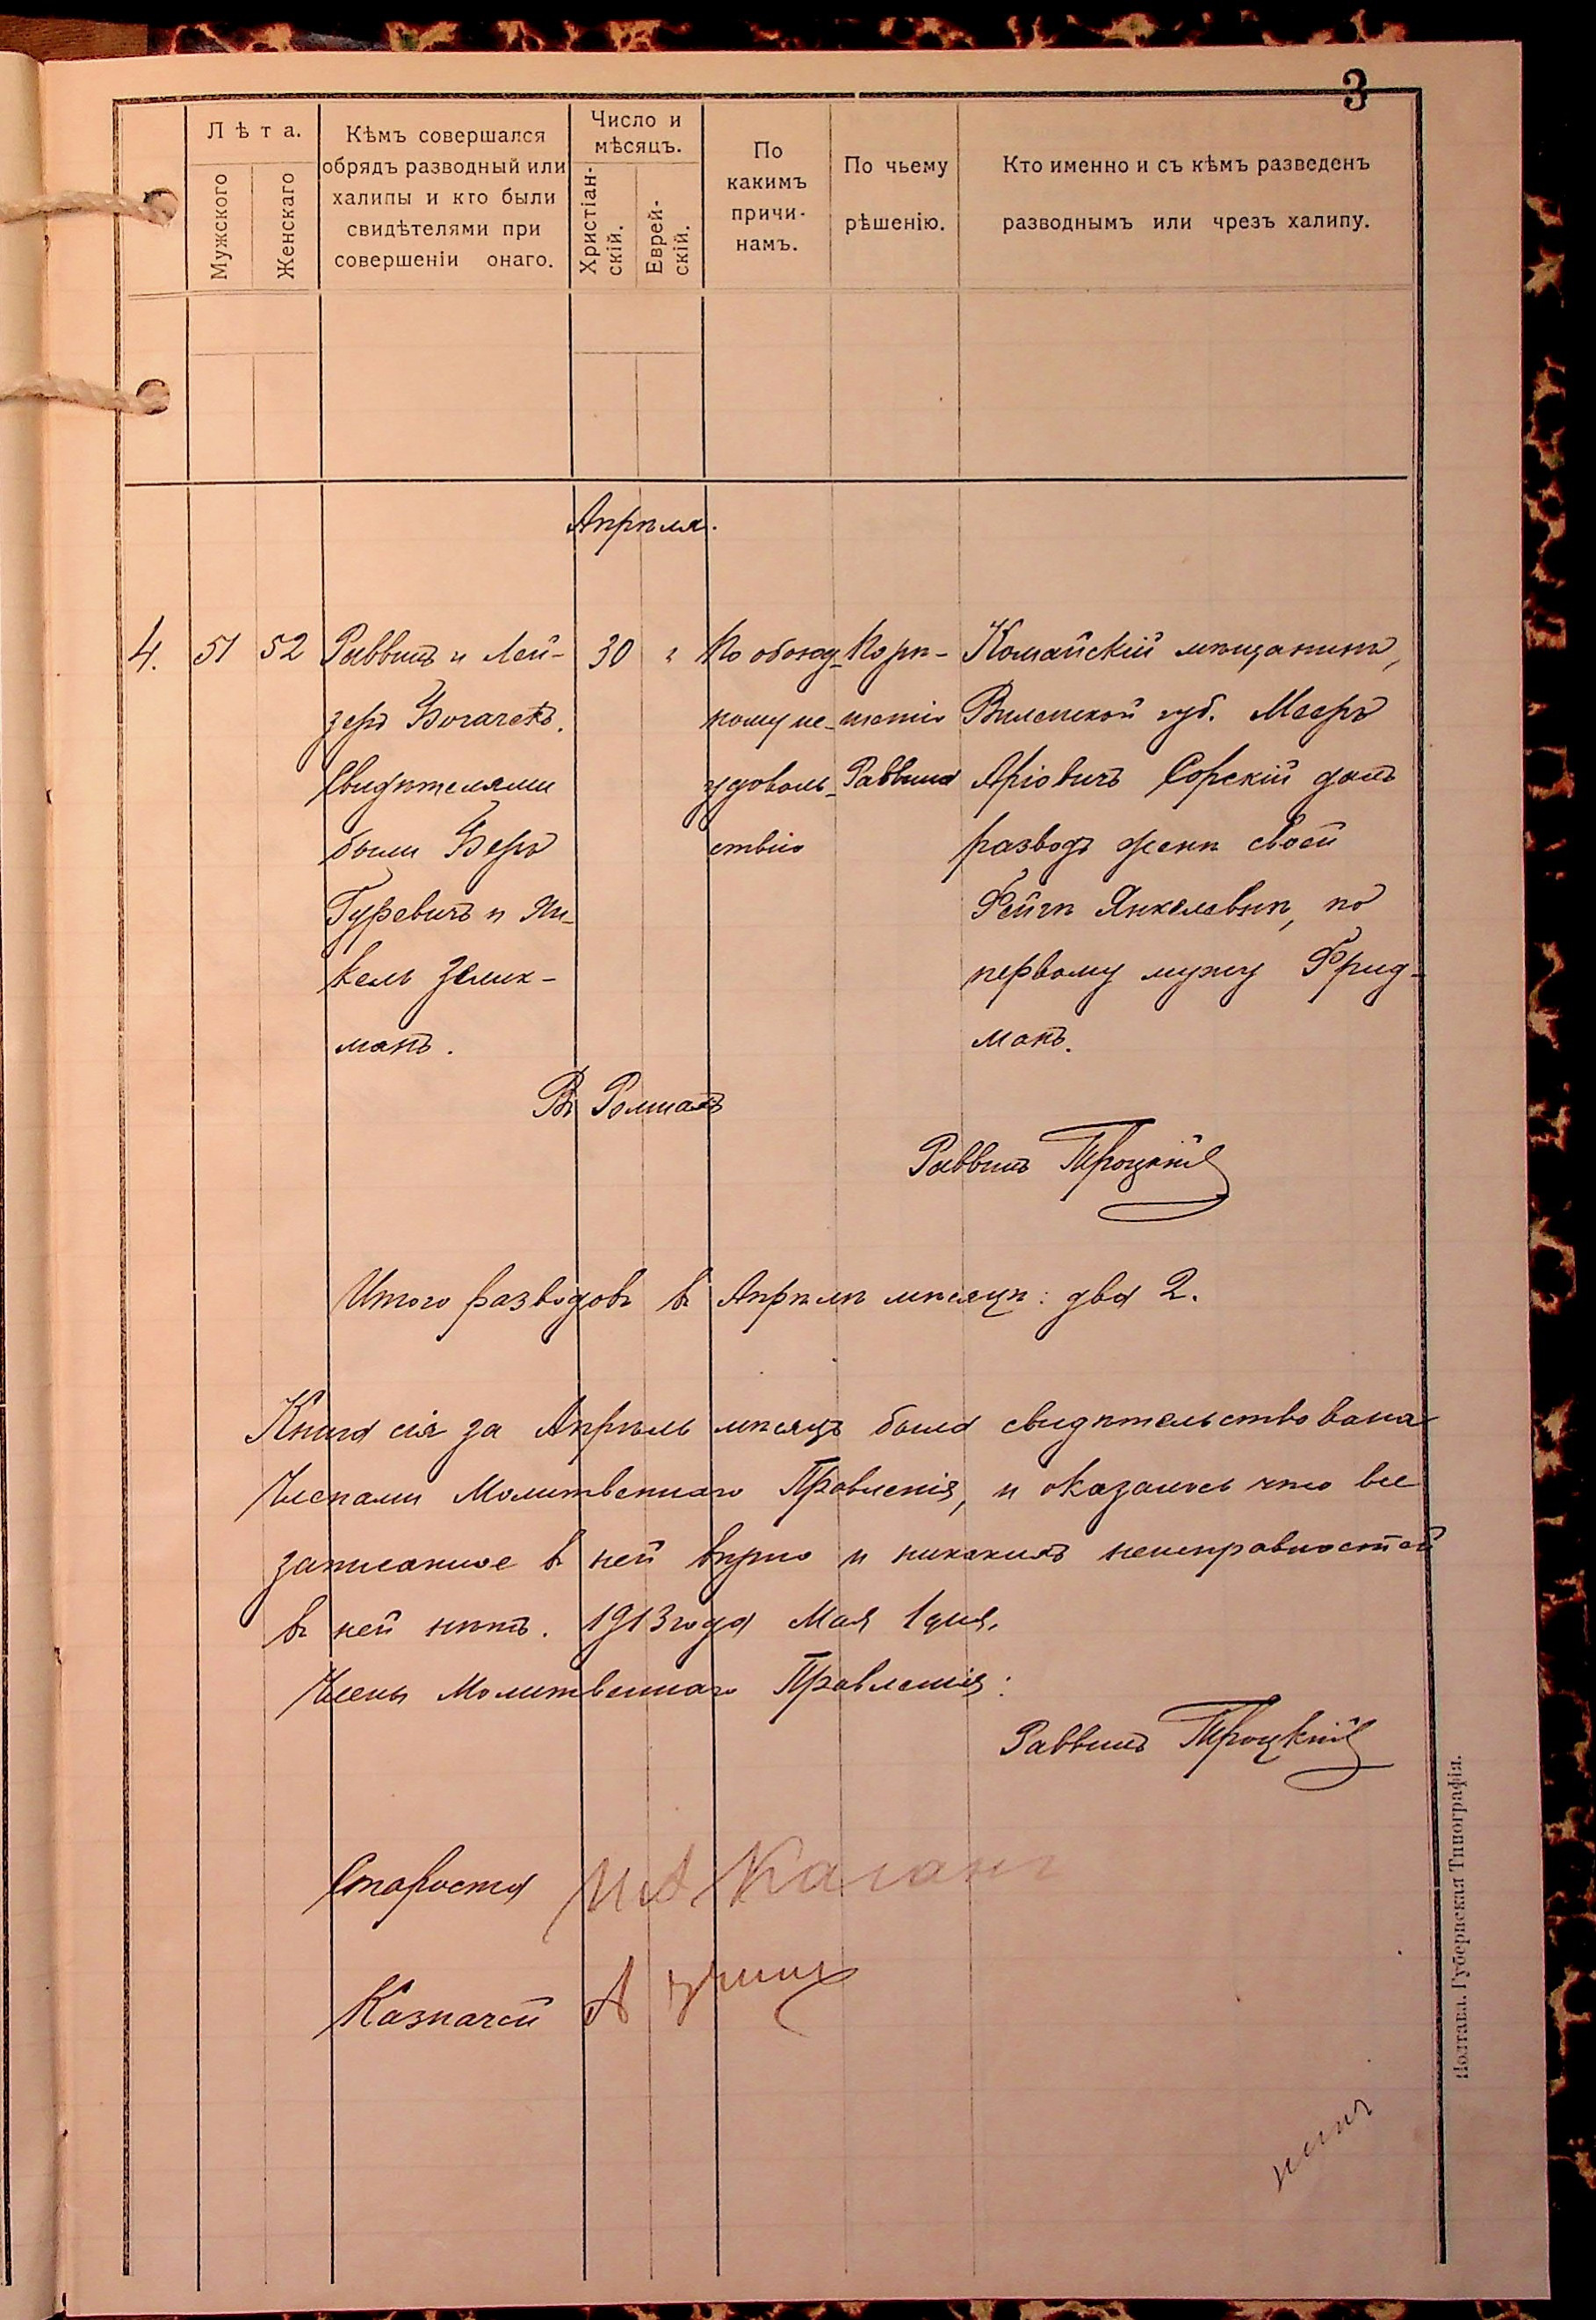 3
Лѣта.
Мужского
Женскаго
Кѣмъ совершался
обрядъ разводный или
халипы и кто были
свидѣтелями при
совершеніи онаго.
Число и
мѣсяцъ.
Христіан-
скій.
Еврей-
скій.
По
какимъ
причи-
намъ.
По чьему
рѣшенію.
Кто именно и съ кѣмъ разведенъ
разводнымъ или чрезъ халипу.
Апрѣля.
4. 51 52
Раввинъ и Лей-
зеръ Богачекъ.
Свидѣтелями
были Беръ
Гуревичъ и Ян-
кель Зелик-
манъ.
30
По обоюд-
ному не-
удоволь-
ствію
По рѣ-
шенію
Раввина
Комайскій мѣщанинъ,
Виленской губ. Мееръ
Аріовичъ Сорскій далъ
разводъ женѣ своей
Фейгѣ Янкелевнѣ, по
первому мужу Фрид-
манъ.
Въ Ромнахъ
Раввинъ Троцкій
Итого разводовъ въ Апрѣлѣ мѣсяцѣ: два 2.
Книга сія за Апрѣль мѣсяцъ была свидѣтельствована
Членами Молитвеннаго Правленія, и оказалось что все
записанное въ ней вѣрно и никакихъ неисправностей
въ ней нѣтъ. 1913 года Мая 1 дня.
Члены Молитвеннаго Правленія:
Раввинъ Троцкій
Староста Каганъ
Казначей А
Полтава. Губернская Типографія.